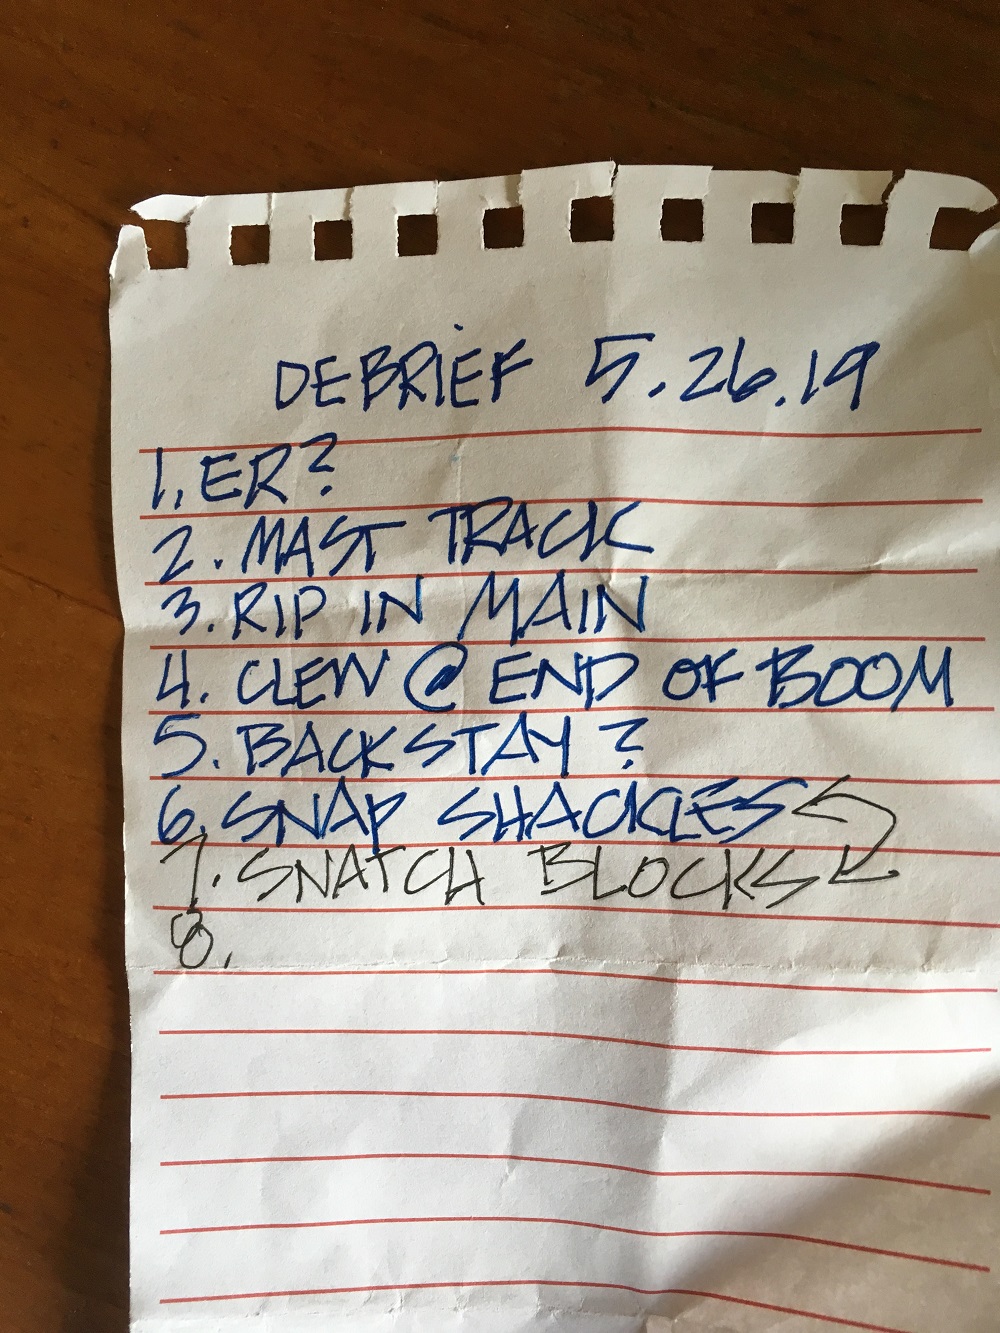 DEBRIEF 5.26.19
1. ER?
2. MAST TRACK
3. RIP IN MAIN
4. CLEW @ END OF BOOM
5. BACKSTAY ?
6. SNAP SHACKLES
7. SNATCH BLOCKS
8.